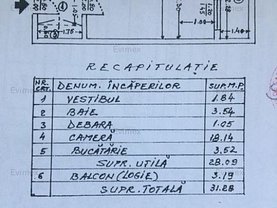 Evimex
1.75
1.00
1.40
RECAPITULAȚIE
NR. CRT. DENUM. ÎNCĂPERILOR SUP. M.P.
1 VESTIBUL 1.84
2 BAIE 3.54
3 DEBARA 1.05
4 CAMERĂ 18.14
5 BUCĂTĂRIE 3.52
SUPR. UTILĂ 28.09
6 BALCON (LOGIE) 3.19
SUPR. TOTALĂ 31.28